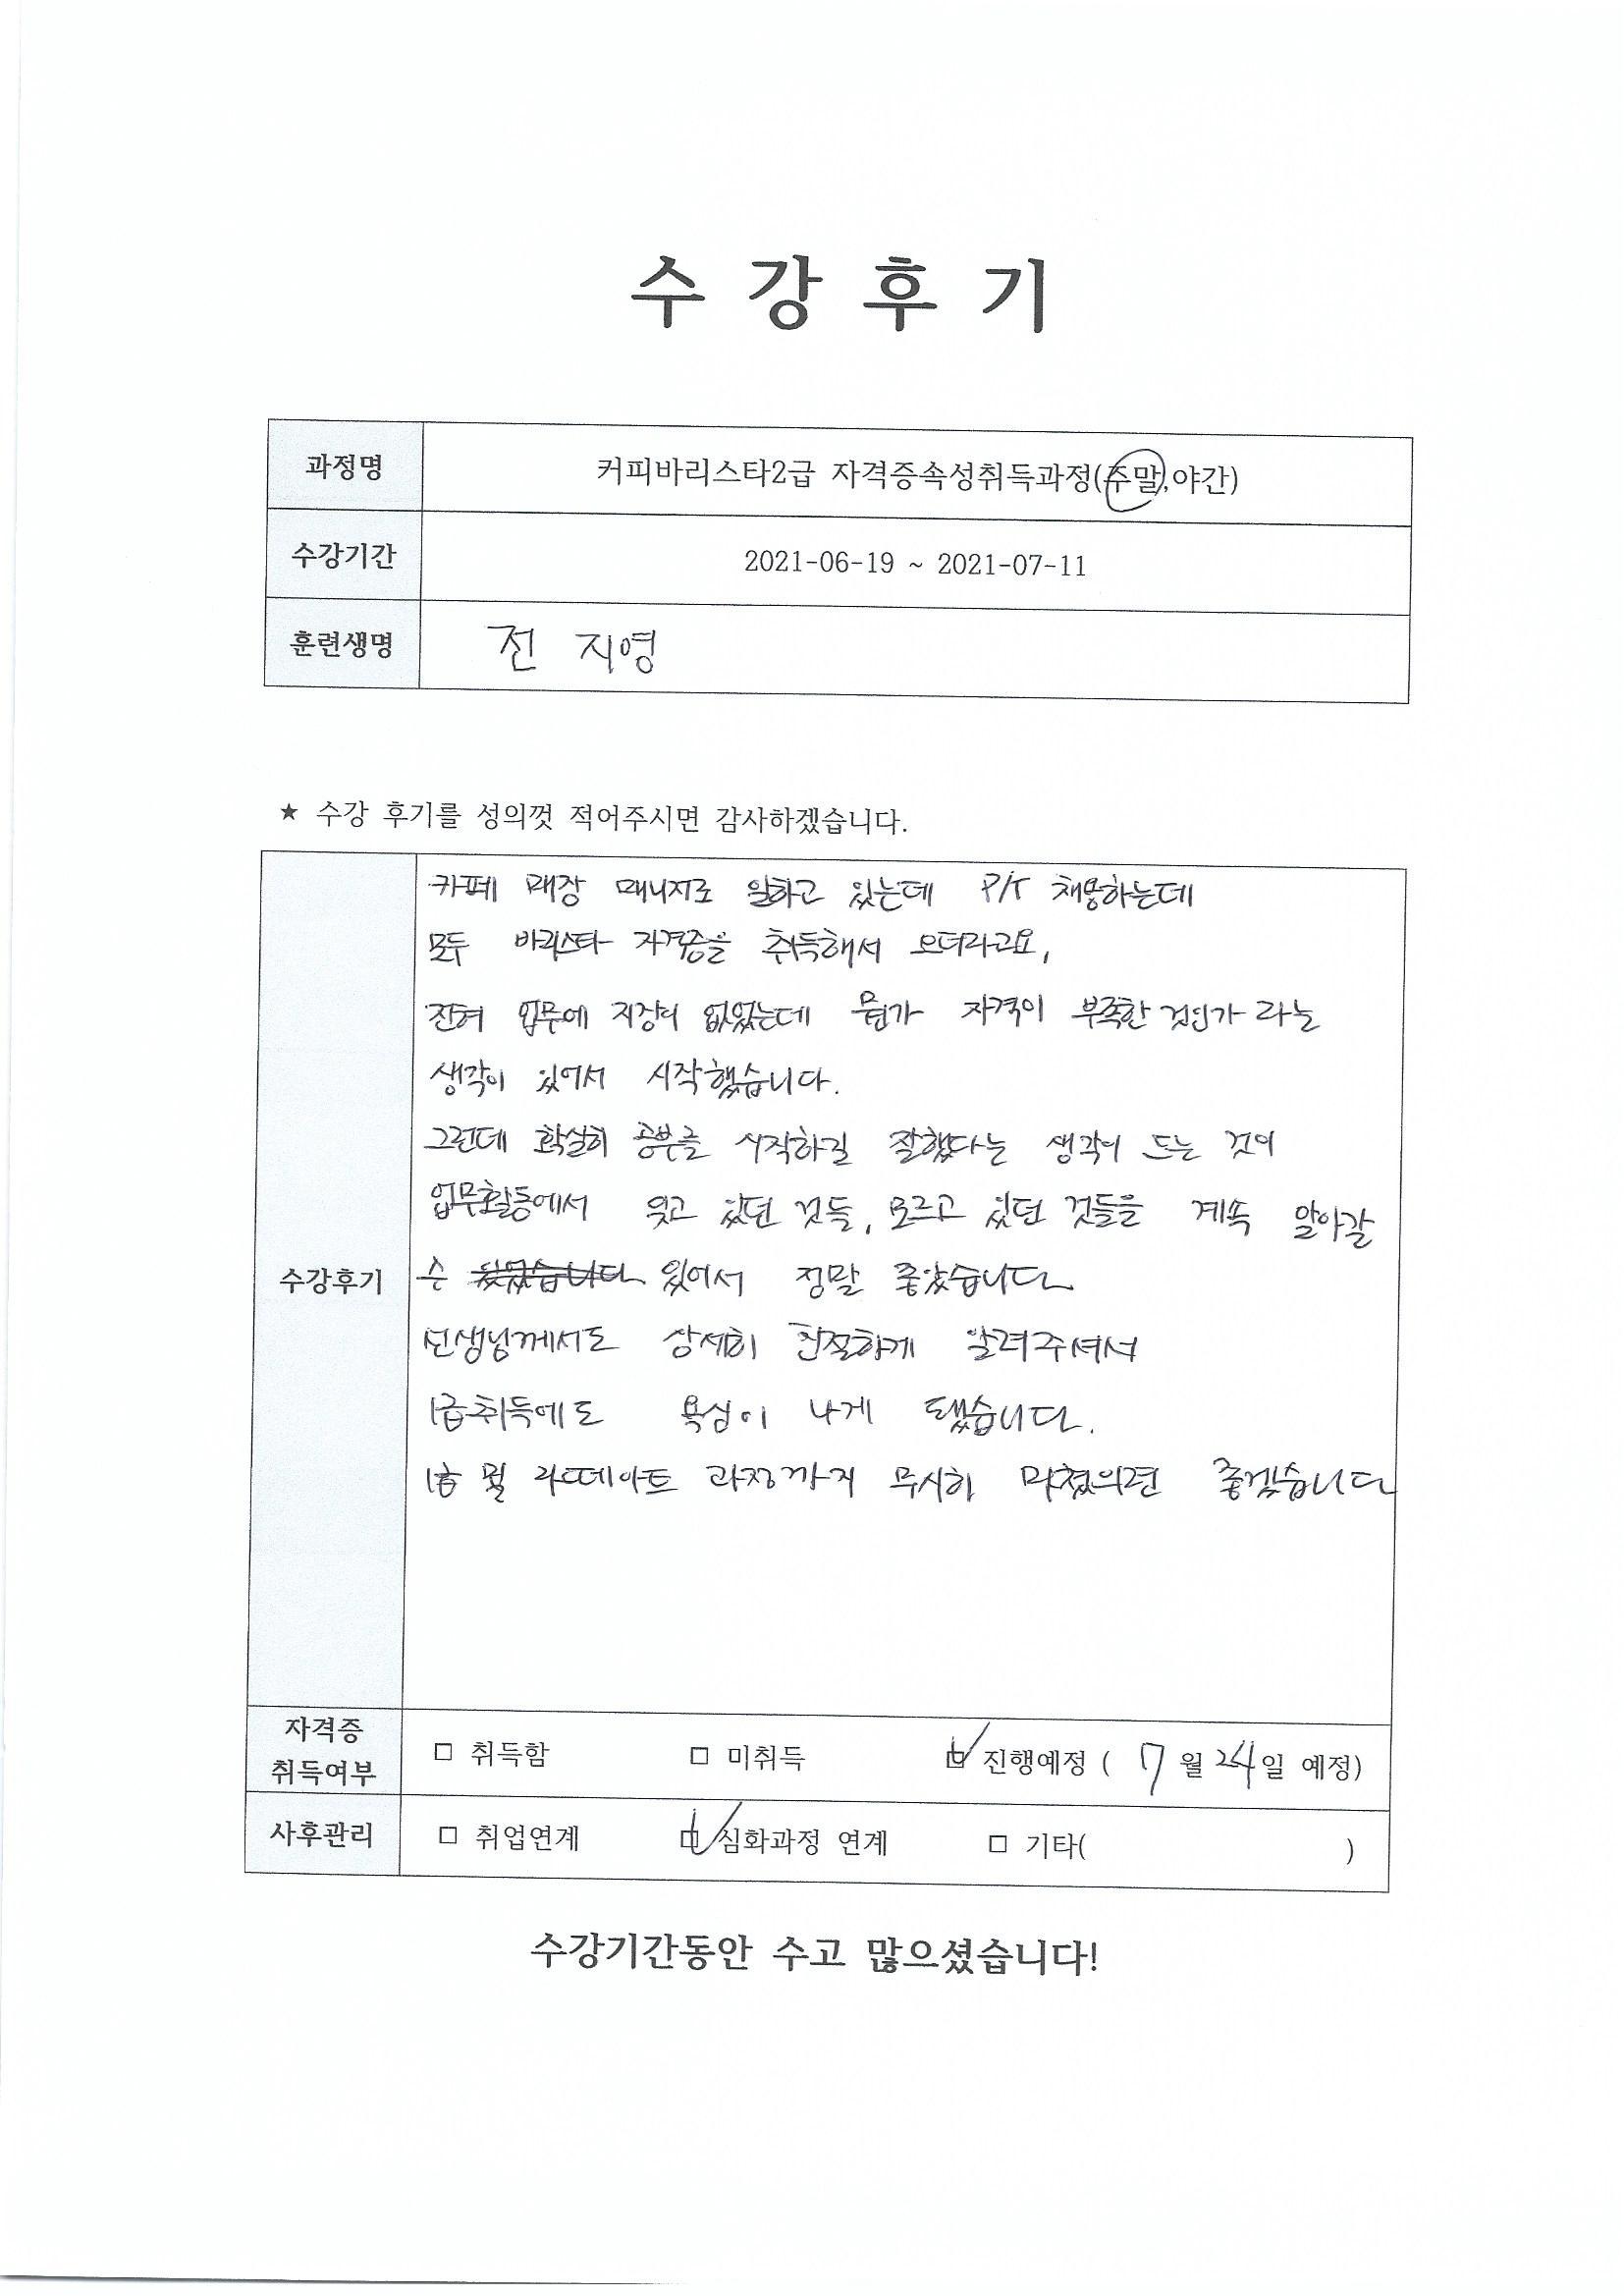 수 강 후 기
과정명 커피바리스타2급 자격증속성취득과정(주말,야간)
수강기간 2021-06-19 ~ 2021-07-11
훈련생명 전 지영
★ 수강 후기를 성의껏 적어주시면 감사하겠습니다.
수강후기
카페 매장 매니저로 일하고 있는데 P/T 채용하는데
모두 바리스타 자격증을 취득해서 오더라고요,
전혀 업무에 지장이 없었는데 뭔가 자격이 부족한 것인가 라는
생각이 있어서 시작했습니다.
그런데 확실히 공부를 시작하길 잘했다는 생각이 드는 것이
업무활동에서 잊고 있던 것들, 모르고 있던 것들을 계속 알아갈
수 있어서 정말 좋았습니다
선생님께서도 상세히 친절하게 알려주셔서
1급취득에도 욕심이 나게 됐습니다.
1급 및 라떼아트 과정까지 무사히 마쳤으면 좋겠습니다
자격증
취득여부 □ 취득함 □ 미취득 □ 진행예정 ( 7 월 24일 예정)
사후관리 □ 취업연계 □ 심화과정 연계 □ 기타( )
수강기간동안 수고 많으셨습니다!